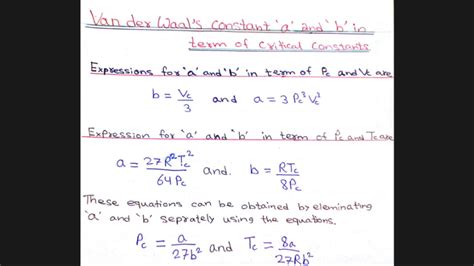 Van der Waal's constant 'a' and 'b' in
term of critical constants
Expressions for 'a' and 'b' in term of Pc and Vc are
b = Vc/3 and a = 3 Pc³Vc²
Expression for 'a' and 'b' in term of Pc and Tc are
a = 27R²Tc²/64Pc and. b = RTc/8Pc
These equations can be obtained by eleminating
'a' and 'b' seprately using the equations.
Pc = a/27b² and Tc = 8a/27Rb